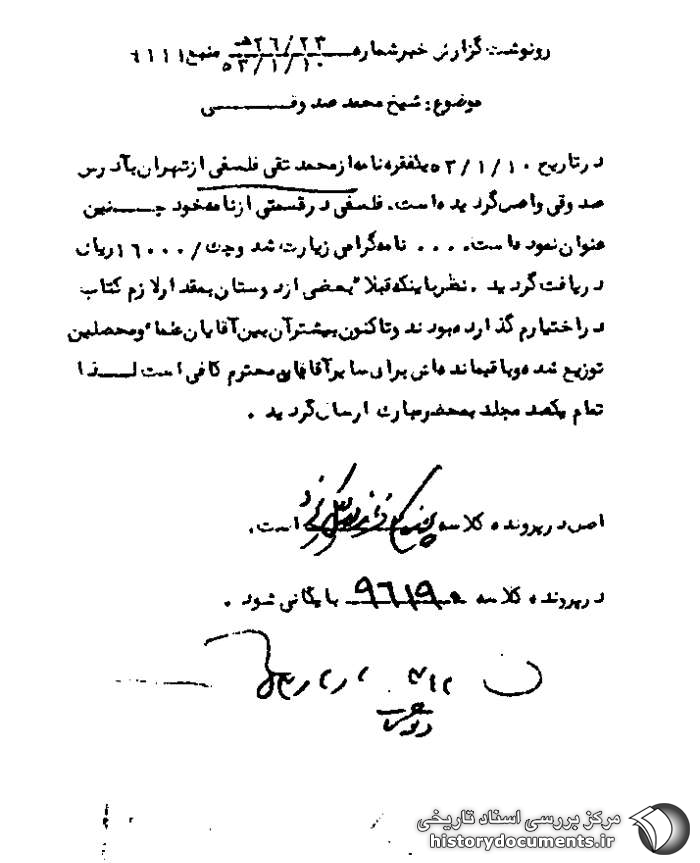 رونوشت گزارش خبر شماره ۲۶/۲۳ ه‍ منبع ۱۱۱۹
۵۳/۱/۱۰
موضوع: شیخ محمد صدوقــــی
در تاریخ ۵۳/۱/۱۰ یکفقره نامه از محمد تقی فلسفی از تهران بآدرس
صدوقی واصل گردیده است. فلسفی در قسمتی از نامه خود چــنین
عنوان نموده است. . . . نامه گرامی زیارت شد و چک /۱۶۰۰۰ ریال
دریافت گردید . نظر باینکه قبلا" بعضی از دوستان بمقدار لازم کتاب
در اختیارم گذارده بودند و تاکنون بیشتر آن بین آقایان علماء و محصلین
توزیع شده و باقیمانده اش برای سایر آقایان محترم کافی است لــذا
تمام یکصد مجلد بمحضر مبارک ارسال گردید .
اصل در پرونده کلاسه است.
در پرونده کلاسه ۹۶۱۹ بایگانی شود .
مرکز بررسی اسناد تاریخی
historydocuments.ir